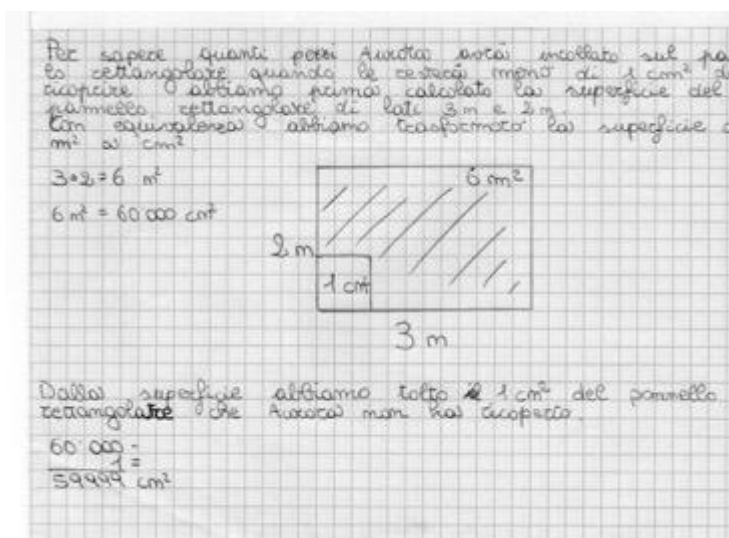 Per sapere quanti pezzi Aurora avrà incollato sul pa
lo rettangolare quando le resterà meno di 1 cm² d
ricoprire abbiamo prima calcolato la superficie del
pannello rettangolare di lati 3 m e 2 m.
Con equivalenza abbiamo trasformato la superficie d
m² a cm².
3•2=6 m²
6 m² = 60'000 cm²
6 m²
2 m
1 cm²
3 m
Dalla superficie abbiamo tolto il 1 cm² del pannello
rettangolare che Aurora non ha ricoperto.
60'000 -
1 =
59999 cm²